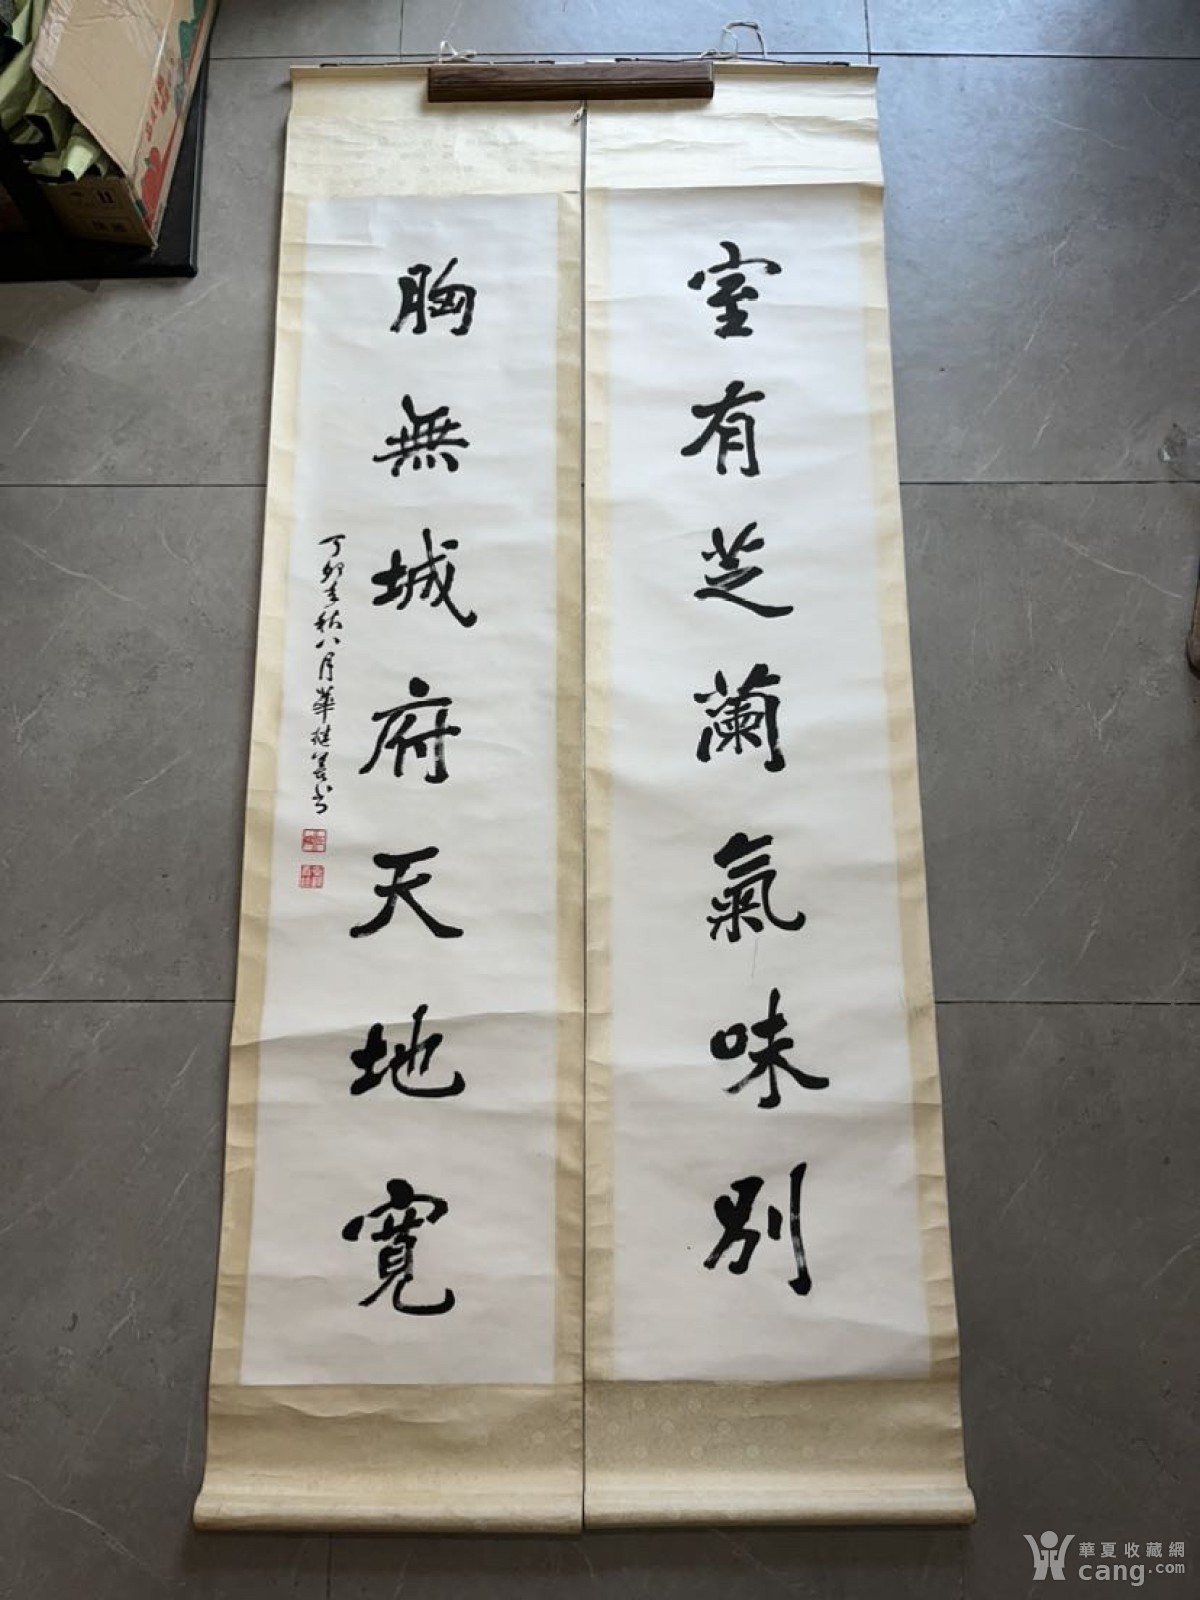 室有芝蘭氣味別
胸無城府天地寬
丁卯年秋八月華继善书
華夏收藏網
cang.com